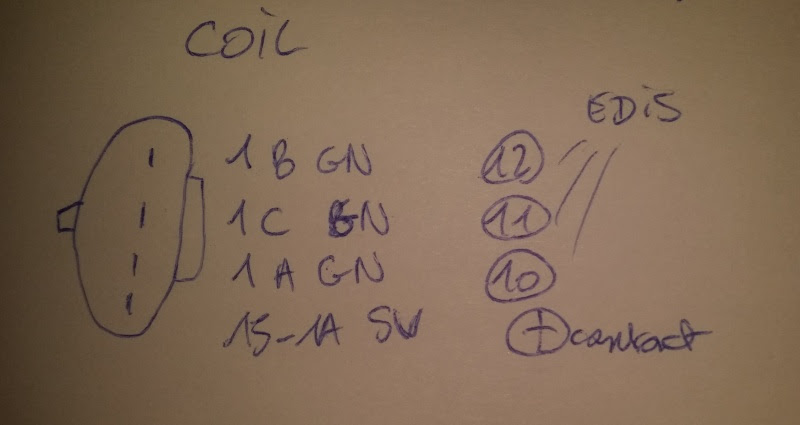 COIL
EDIS
1 B GN 12
1 C GN 11
1 A GN 10
15-1A SW + contact